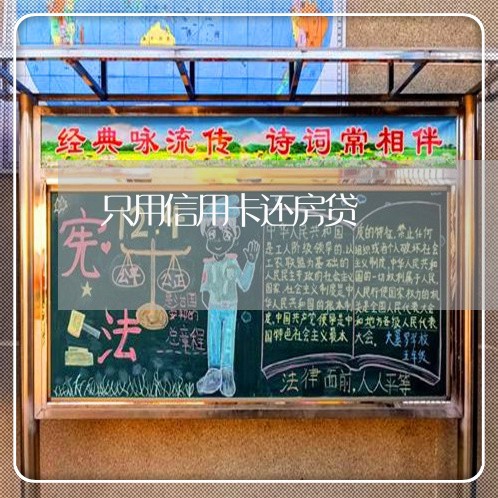 经典咏流传 诗词常相伴
只用信用卡还房贷
宪法
12.4
公平 公正
总章程
中华人民共和国
是工人阶级领导的，以
工农联盟为基础的
人民民主专政的社会主义
国家，社会主义制度是中
华人民共和国的根本制
度，中国共产党领导是中
国特色社会主义最本
质的特征，禁止任何
组织或者个人破坏社会
主义制度，中华人民共和
国的一切权利属于人民，
人民行使国家权力的机
关是全国人民代表大会
和地方各级人民代表
大会。
五年级
法律面前，人人平等